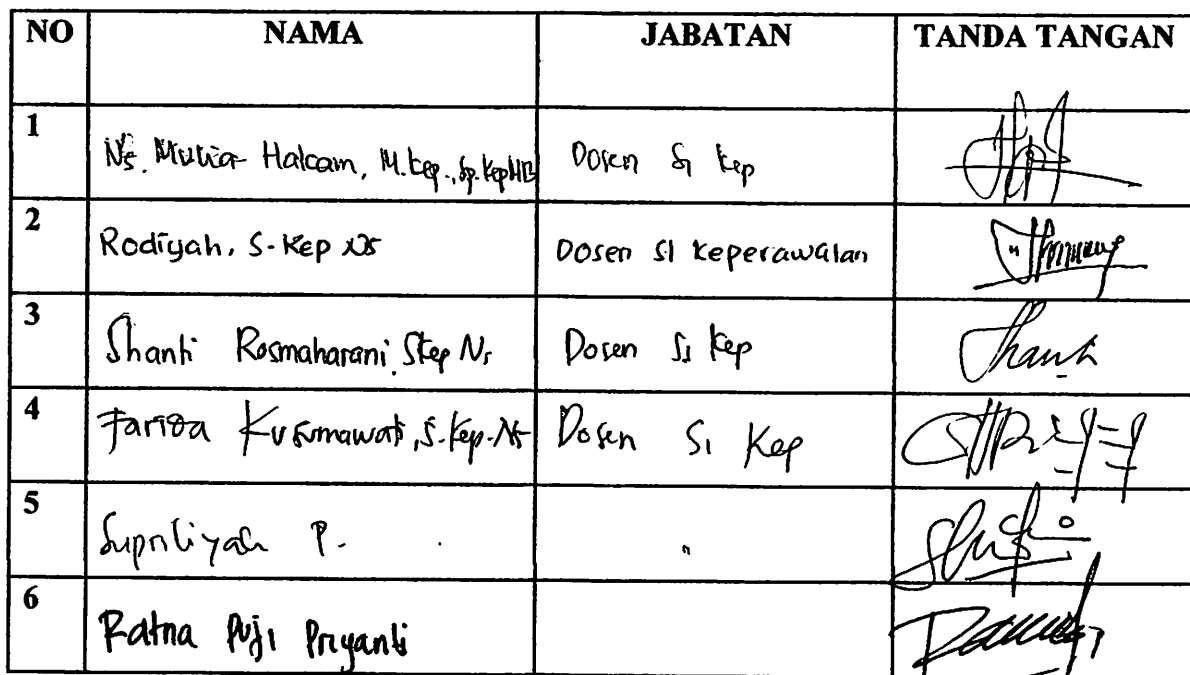 NO NAMA JABATAN TANDA TANGAN
1 Ns. Mutia Halcam, M.Kep., Sp.Kep MB Dosen S1 Kep
2 Rodiyah, S.Kep Ns Dosen S1 Keperawatan
3 Shanti Rosmaharani S.Kep Ns Dosen S1 Kep
4 Farida Kusumawati, S.Kep.Ns Dosen S1 Kep
5 P. "
6 Ratna Puji Priyanti